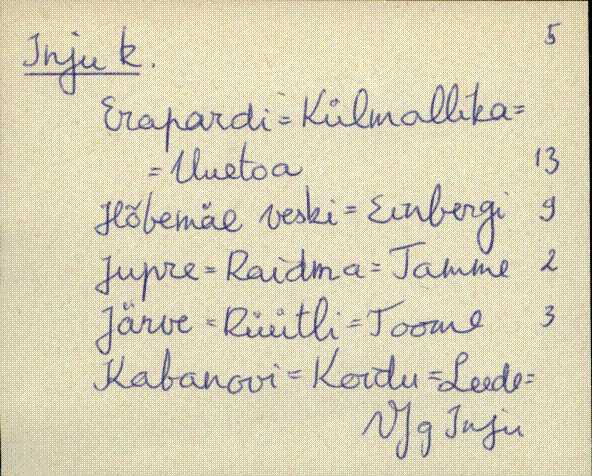 5
Inju k.
Erapardi = Külmallika =
= Uuetoa 13
Hõbemäe veski = Einbergi 9
Jupre = Raidma = Tamme 2
Järve = Rüütli = Toome 3
Kabanovi = Koidu = Leede =
VJg Inju